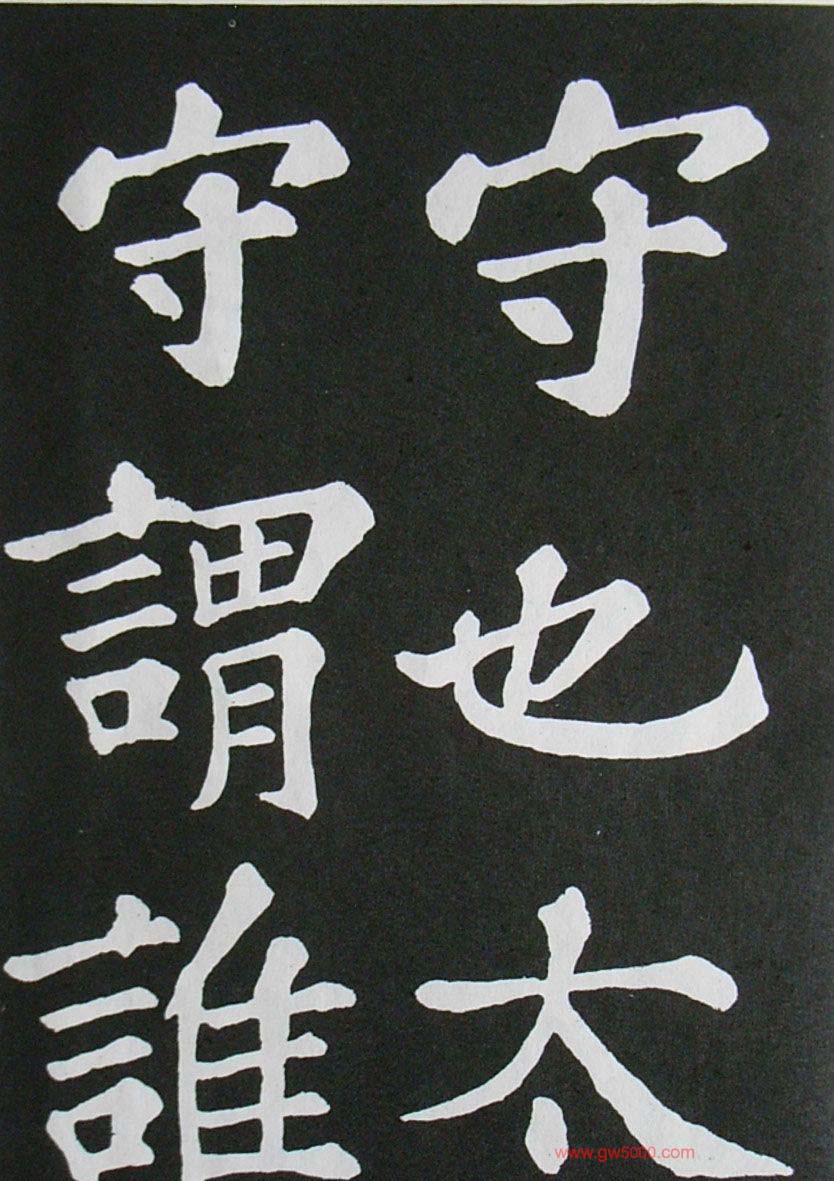 守也太
守謂誰
www.gw5000.com